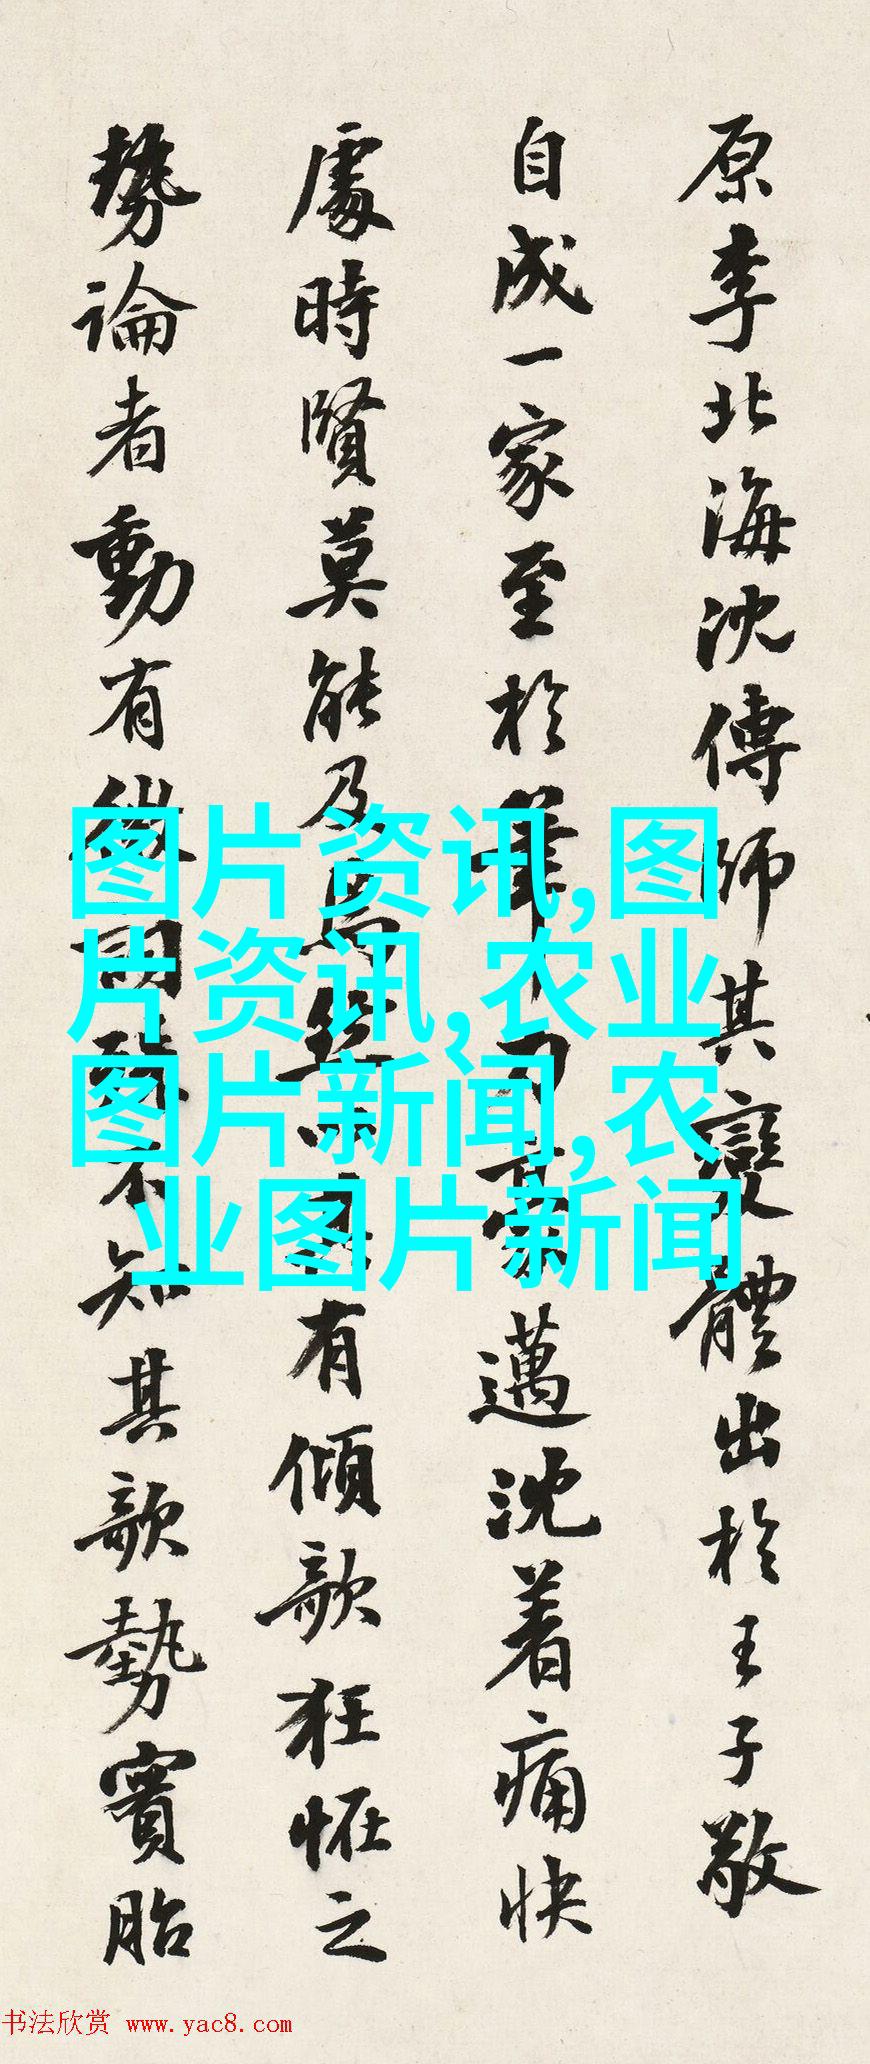 原李北海沈傳師其變體出於王子敬
自成一家至於筆力豪邁沈着痛快
處時賢莫能及焉有傾欹狂怪之
勢論者動有微詞殊不知其欹勢實胎
图片资讯,图
片资讯,农业
图片新闻,农
业图片新闻
书法欣赏 www.yac8.com